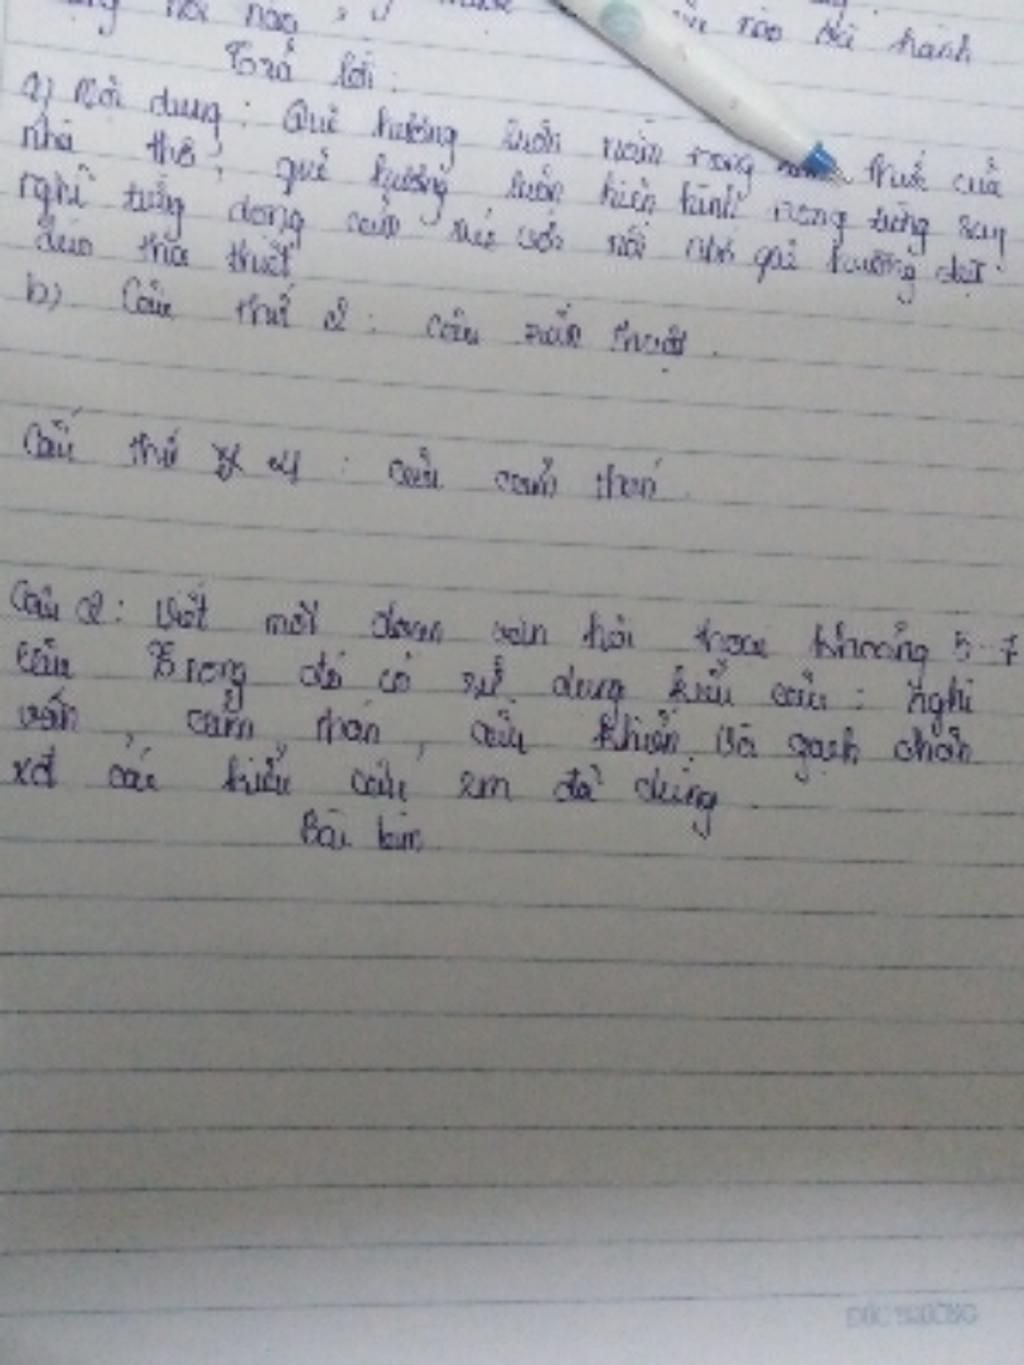 nơi nào
nào bài hành
Trả lời:
a) Nội dung: Quê hương luôn nằm trong thức của
nhà thơ, quê hương luôn hiện hình trong từng suy
nghĩ từng dòng cảm xúc với nỗi nhớ quê hương da
diếc tha thiết
b) Câu thứ 2: câu trần thuật.
Câu thứ 4: câu cảm thán.
Câu 2: Viết một đoạn văn hội thoại khoảng 5-7
câu Trong đó có sử dụng kiểu câu: nghi
vấn, cảm thán, cầu khiến. Và gạch chân
xđ các kiểu câu em đã dùng.
Bài làm